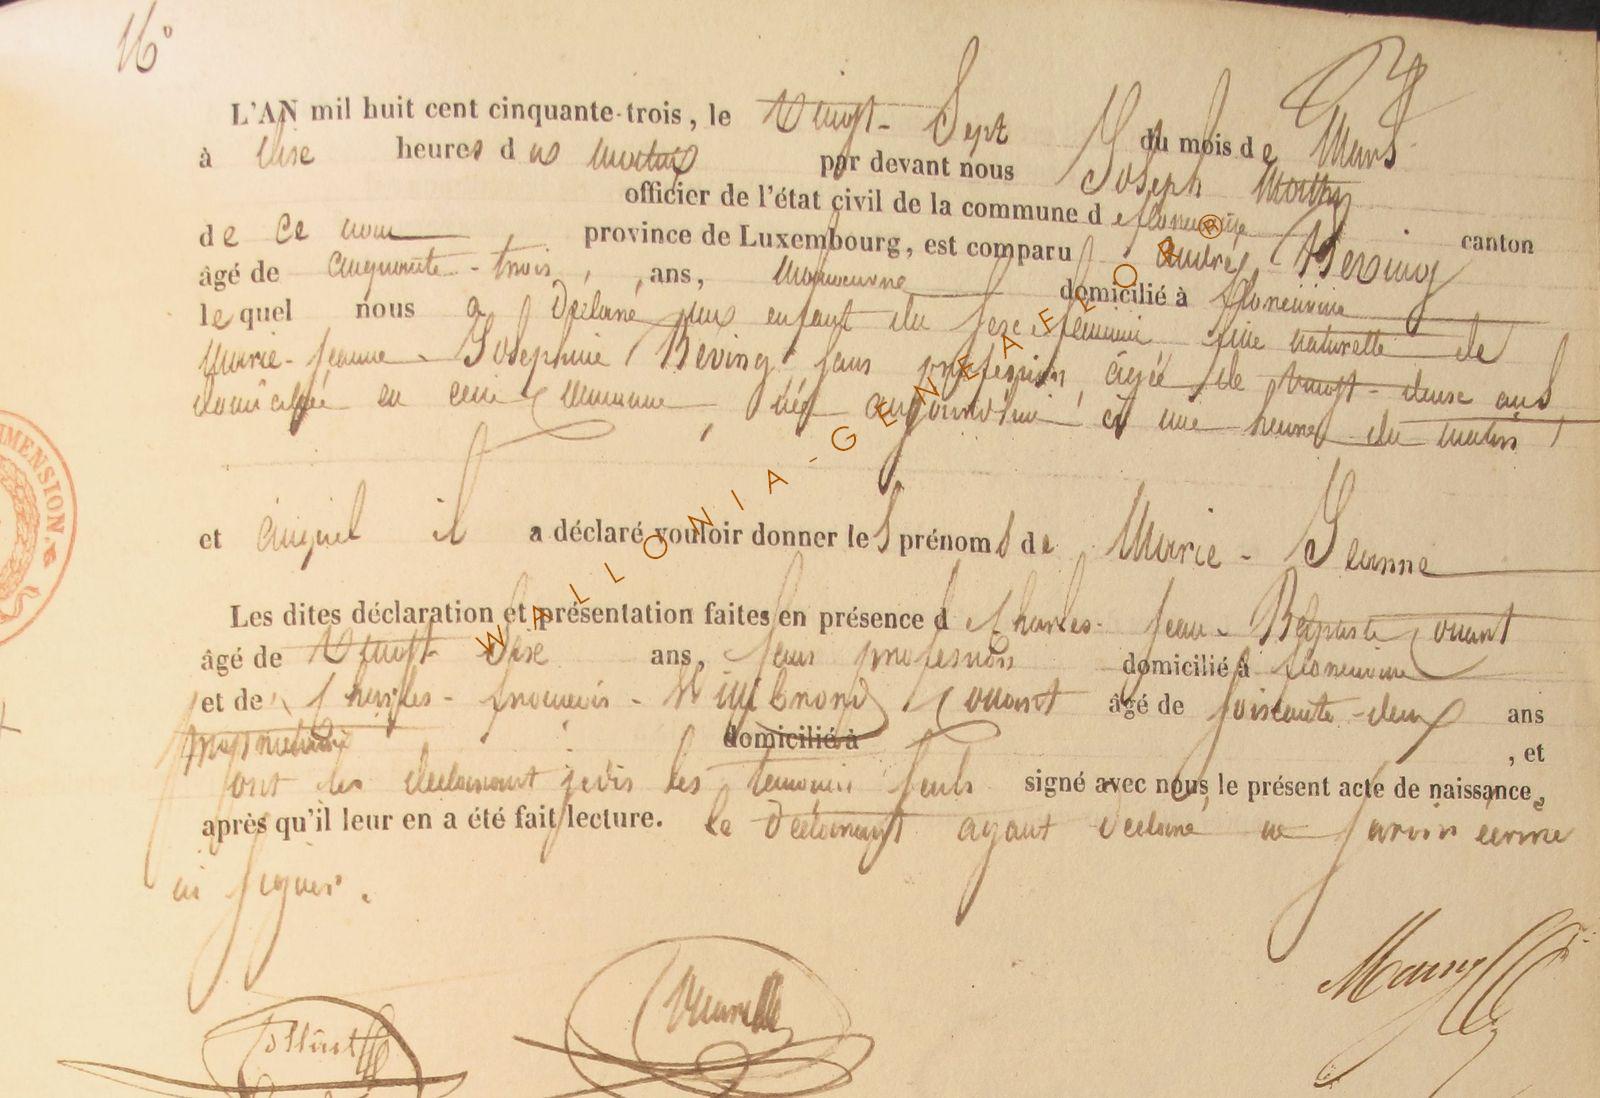 16°
L'AN mil huit cent cinquante-trois, le vingt-Sept du mois de Mars
à heures du matin par devant nous Joseph
officier de l'état civil de la commune d
de ce nom, province de Luxembourg, est comparu André Beving canton
âgé de cinquante-trois, ans, domicilié à Florenville
lequel nous a déclaré enfant du sexe féminin fille naturelle de
Marie-Jeanne-Josephine Beving sans profession, âgée de vingt-deux ans
domiciliée en cette commune née aujourd'hui à une heure du matin,
et auquel il a déclaré vouloir donner les prénoms de Marie-Jeanne
Les dites déclaration et présentation faites en présence d Charles-Jean-Baptiste
âgé de vingt-Sixe ans, sans profession domicilié à Florenville
et de Charles-François-Willibrord âgé de soixante-deux ans
propriétaire domicilié à , et
les témoins seuls signé avec nous le présent acte de naissance,
après qu'il leur en a été fait lecture. le déclarant ayant déclaré ne savoir écrire
ni signer.
DIMENSION.
WALLONIA-GENEAFLOR®